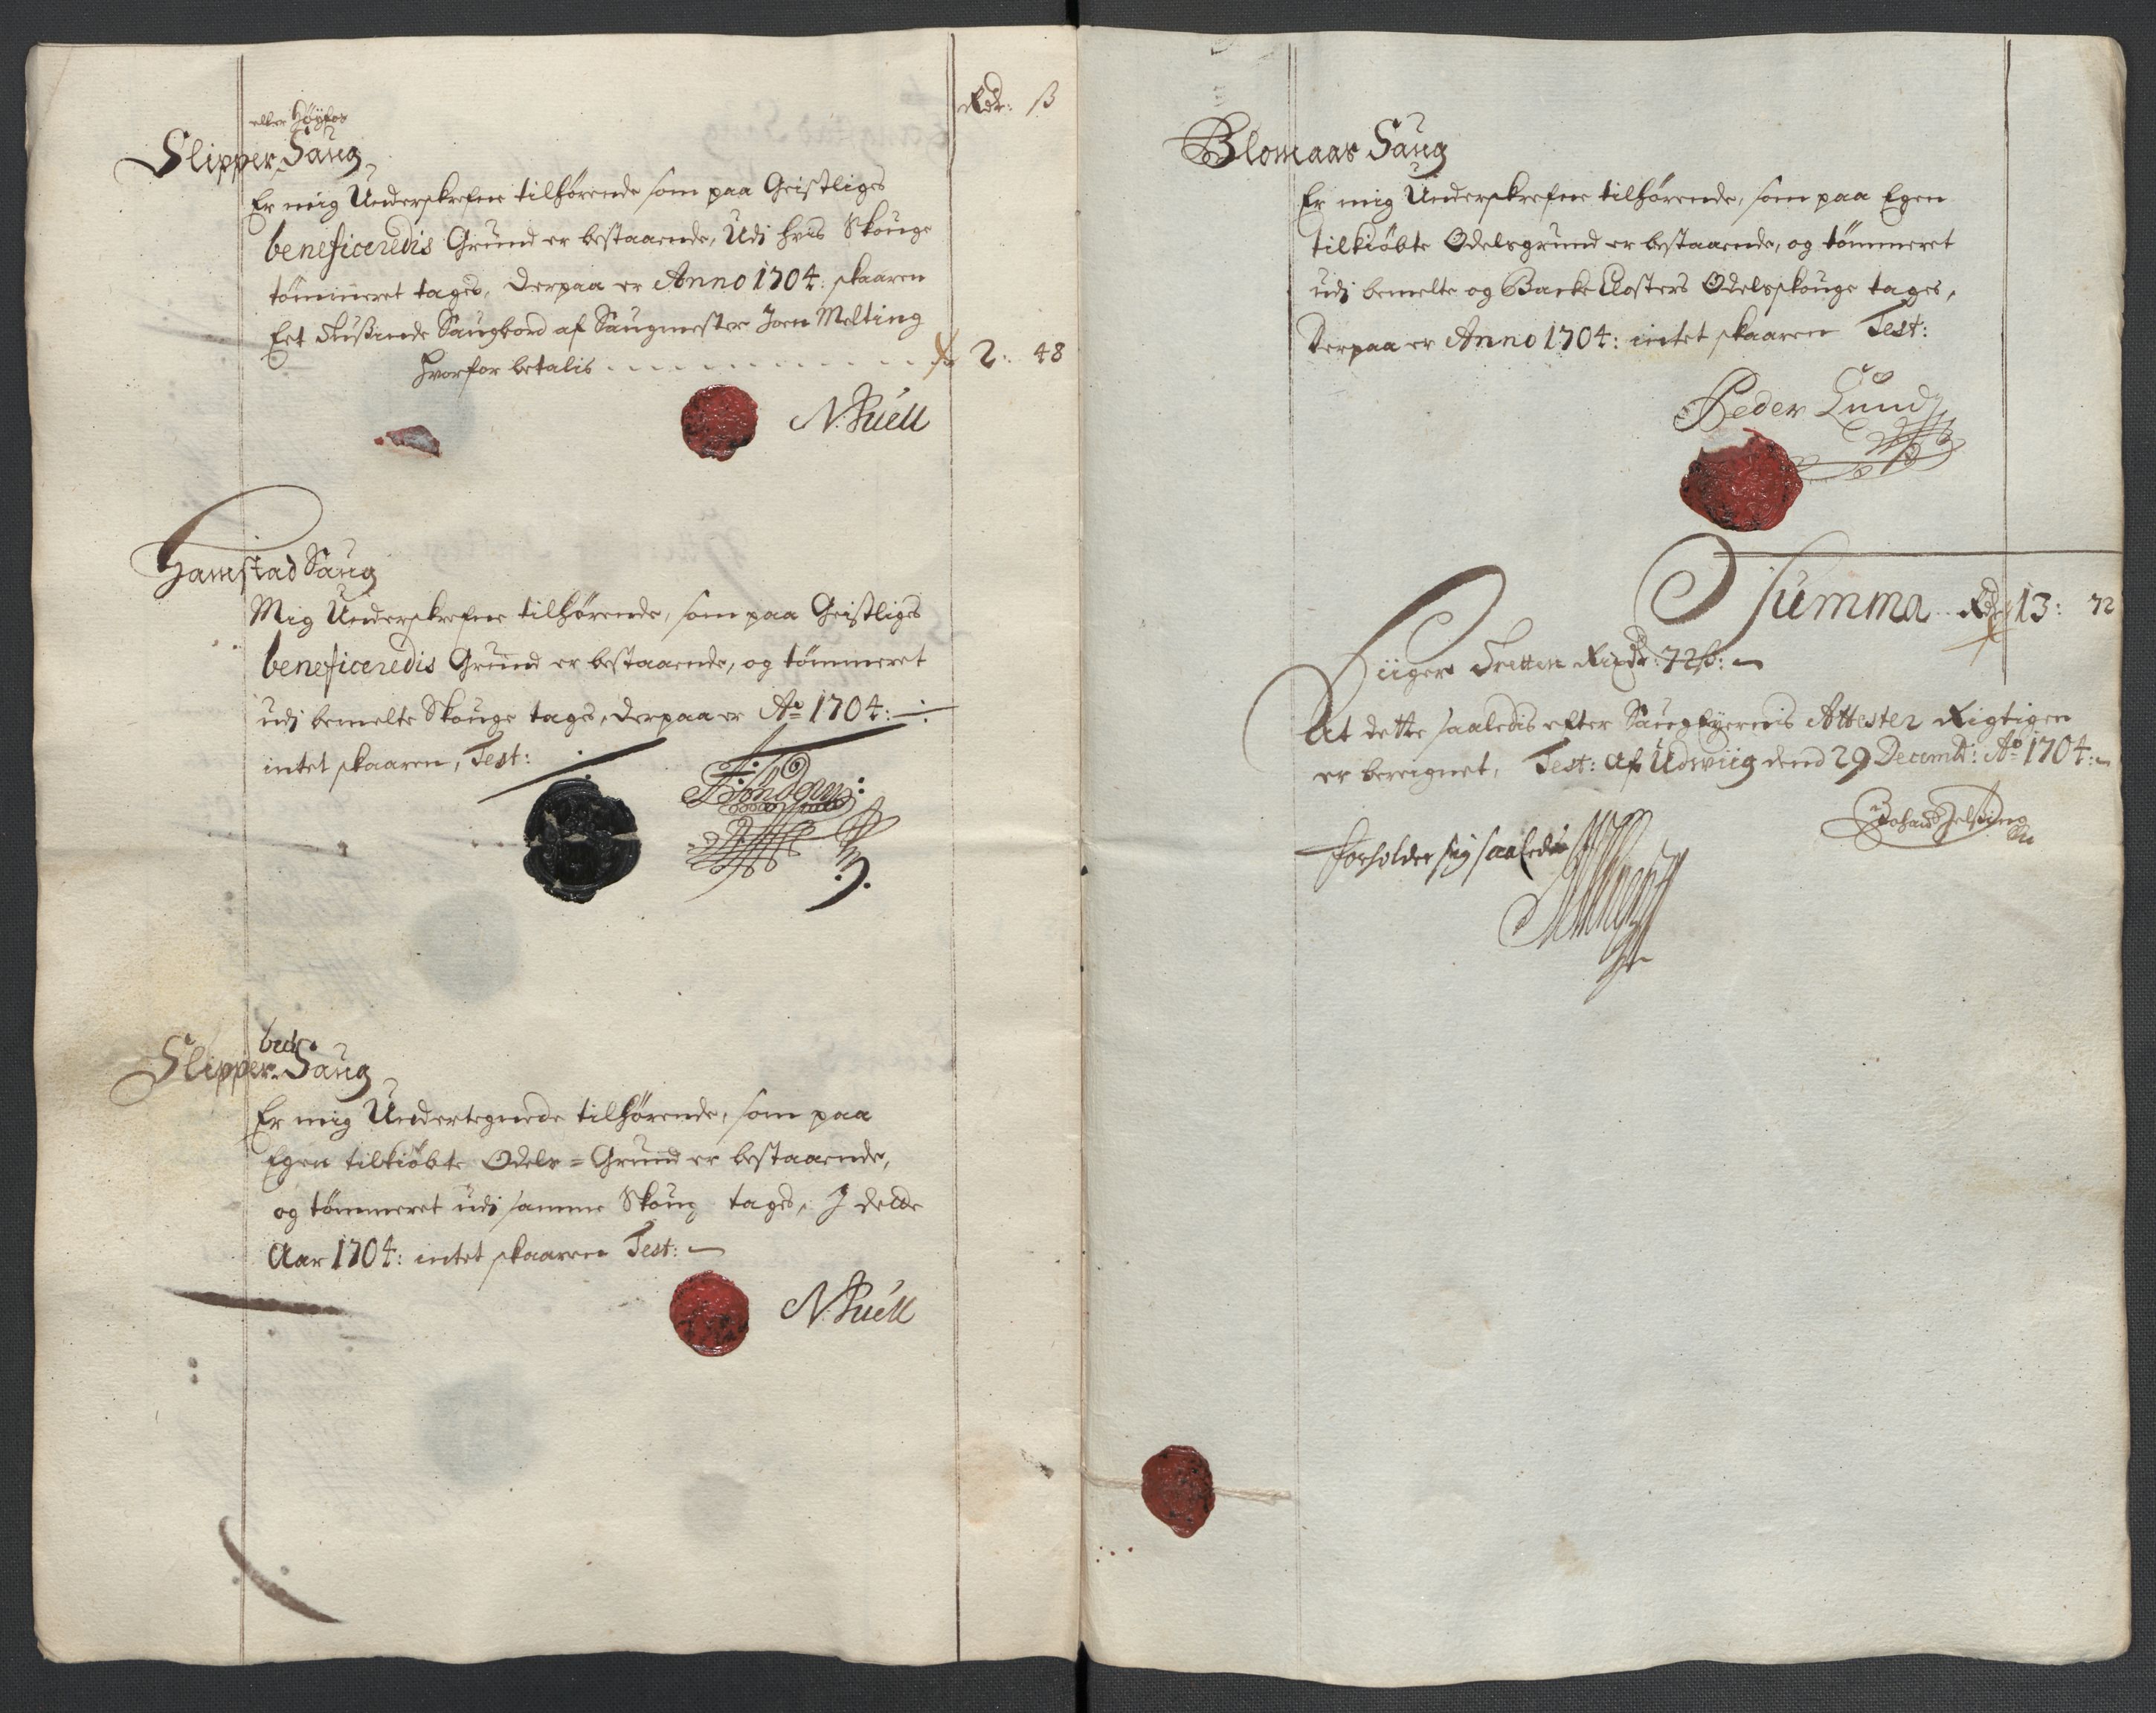 Rdr: ß
eller Höyfos
Slipper Saug
Er mig Underskrefne tilhörende som paa Geistliges
beneficeredis Grund er bestaaende, Udi hvis Skouge
tömmeret tages, Derpaa er Anno 1704: skaaren
Eet Tusinde Saugbord af Saugmester Joen Melting
hvorfor betalis 2: 48
N. Kuell
Hamstad Saug
Mig Underskrefne tilhörende, som paa Geistliges
beneficeredis Grund er bestaaende, og tömmeret
udi bemelte Skouge tages, Derpaa er Ao 1704:
intet skaaren, Test:
bech
Slipper Saug
Er mig Undertegnede tilhörende, som paa
Egen tilkiöbte Odels=Grund er bestaaende,
og tömmeret udi samme Skoug tages, I dette
Aar 1704: intet skaaren Test:
N. Kuell
Blomaas Saug
Er mig Underskrefne tilhörende, som paa Egen
tilkiöbte Odelsgrund er bestaaende, og tömmeret
udi bemelte og Backe Closters Odelsskouge tages,
Derpaa er Anno 1704: intet skaaren Test:
Peder Lund
Summa Rdr 13: 72
Siiger Tretten Rixdr: 72 ß:
At dette saaledis efter Saugeyernis Attester Rigtigen
er bereignet, Test: Af Udsviig dend 29 Decembr: Ao 1704:
forholder sig saaledis